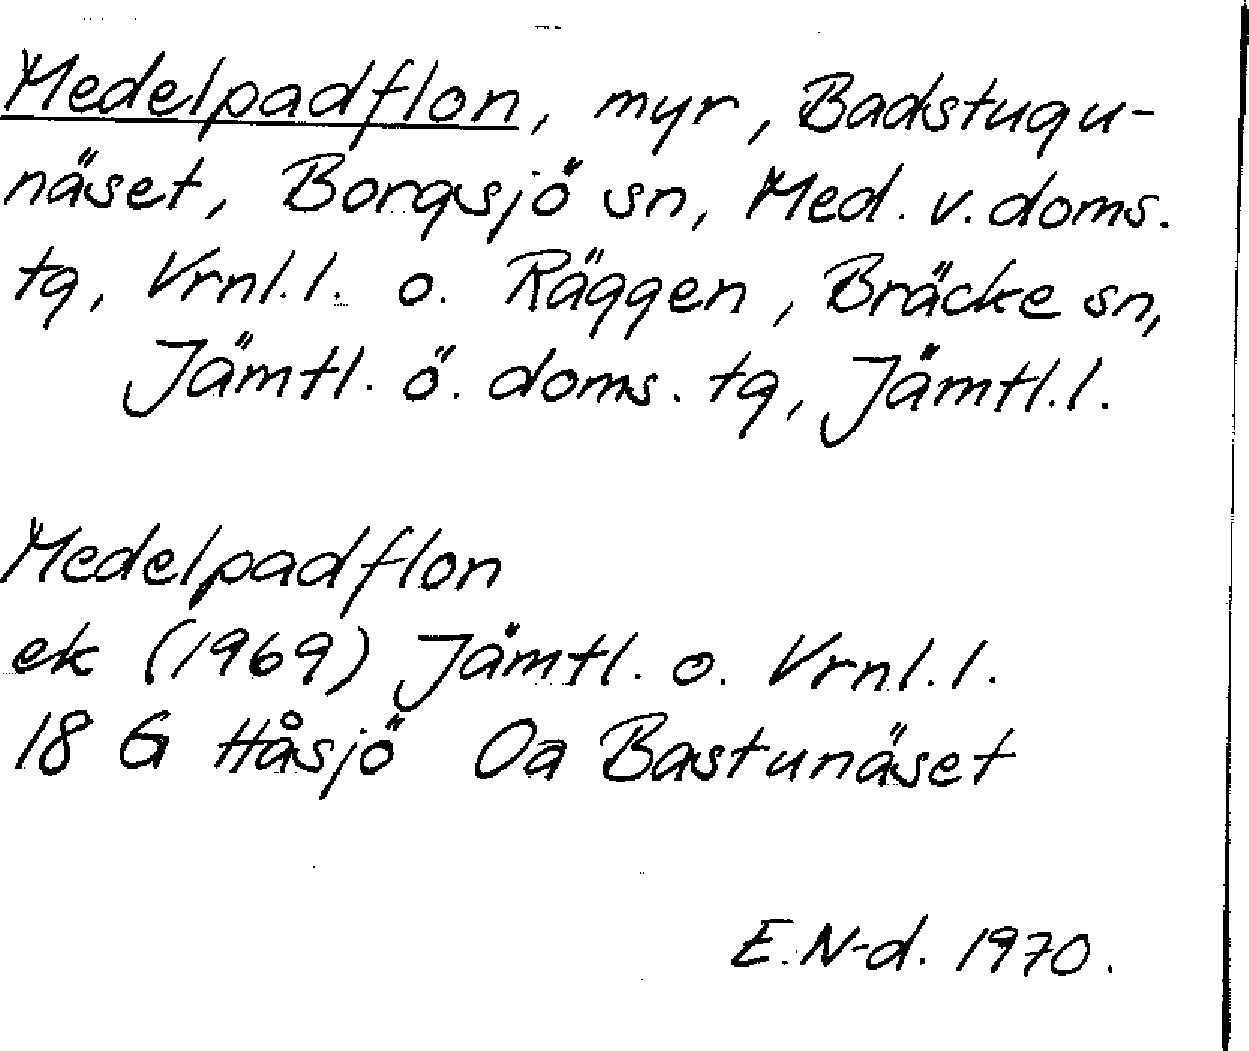 Medelpadflon, myr, Badstugu-
näset, Borgsjö sn, Med. v. doms.
tg, Vrnl.l. o. Räggen, Bräcke sn,
Jämtl. ö. doms. tg, Jämtl.l.
Medelpadflon
ek (1969) Jämtl. o. Vrnl.l.
18 G Håsjö Oa Bastunäset
E.N-d. 1970.